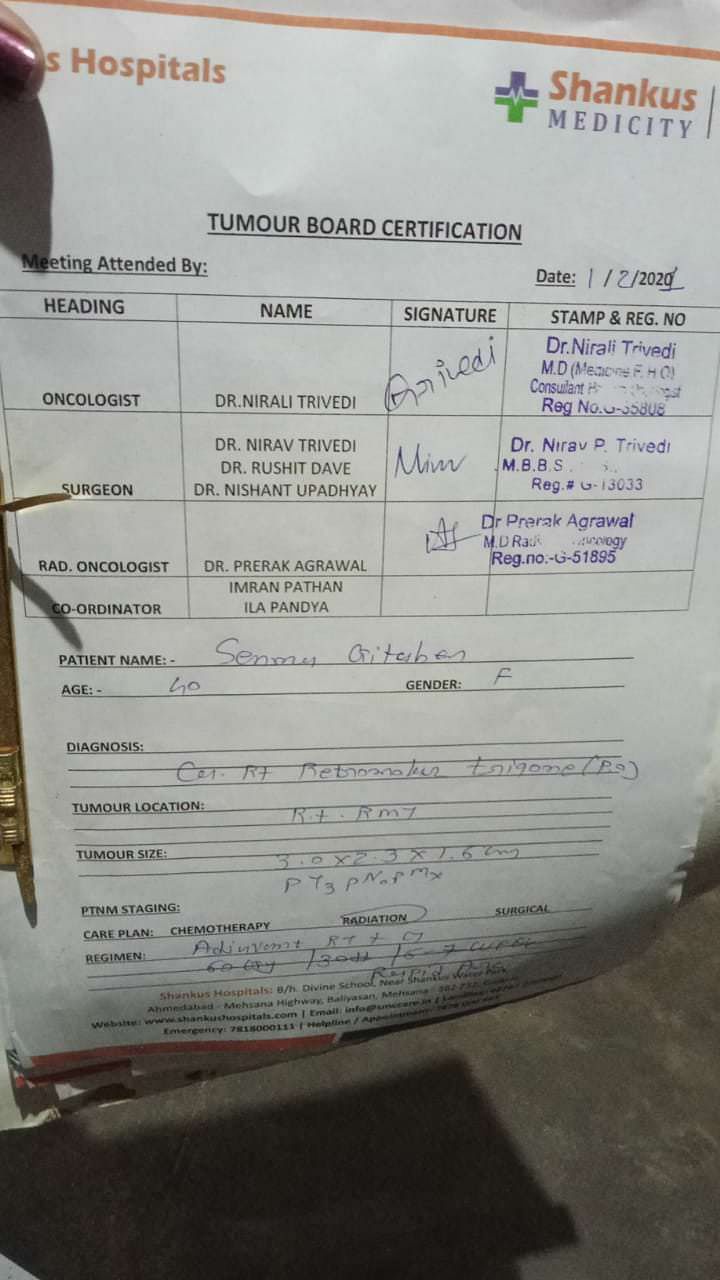 s Hospitals
Shankus
MEDICITY
TUMOUR BOARD CERTIFICATION
Meeting Attended By:
Date: 1/2/2021
HEADING NAME SIGNATURE STAMP & REG. NO
ONCOLOGIST DR.NIRALI TRIVEDI
Dr.Nirali Trivedi
M.D (Medicine
Consultant
Reg No.G-35808
SURGEON
DR. NIRAV TRIVEDI
DR. RUSHIT DAVE
DR. NISHANT UPADHYAY
Dr. Nirav P. Trivedi
M.B.B.S
Reg.# G-13033
RAD. ONCOLOGIST DR. PRERAK AGRAWAL
Dr Prerak Agrawal
M.D
Reg.no:-G-51895
CO-ORDINATOR
IMRAN PATHAN
ILA PANDYA
PATIENT NAME: - Gitaben
AGE: - 40 GENDER: F
DIAGNOSIS:
Ca. Rt Retromolar trigone
TUMOUR LOCATION: Rt. RMT
TUMOUR SIZE: 3.0 x 2.3 x 1.6 cm
PTNM STAGING: pT3 pN0 pMx
CARE PLAN: CHEMOTHERAPY RADIATION SURGICAL
REGIMEN: Adjuvant RT
60 Gy / 30# / 6-7
Shankus Hospitals: B/h. Divine School, Near Shankus Water Park,
Ahmedabad - Mehsana Highway, Baliyasan, Mehsana - 382 732,
Website: www.shankushospitals.com | Email: info@smccare.in |
Emergency: 7818000111 | Helpline /